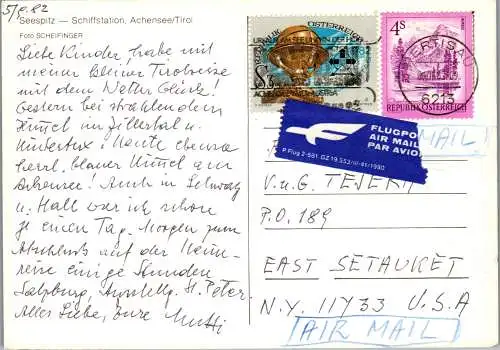 5/9.82
Seespitz — Schiffstation, Achensee/Tirol
Foto SCHEIFINGER
Liebe Kinder, habe mit
meiner kleinen Tirolreise
mit dem Wetter Glück!
Gestern bei strahlendem
Himmel im Zillertal u.
Hintertux. Heute ebenso
herrl. blauer Himmel am
Achensee! Auch in Schwaz
u. Hall war ich schon
je einen Tag. Morgen zum
Abschluß auf der Heim-
reise einige Stunden
Salzburg, Ausstellg. St. Peter.
Alles Liebe, Eure Mutti
REPUBLIK ÖSTERREICH
4S
REPUBLIK ÖSTERREICH
PERTISAU
FLUGPOST
AIR MAIL
PAR AVION
AIR MAIL
V.u.G.
P.O. 189
EAST SETAUKET
N.Y. 11733 U.S.A
AIR MAIL